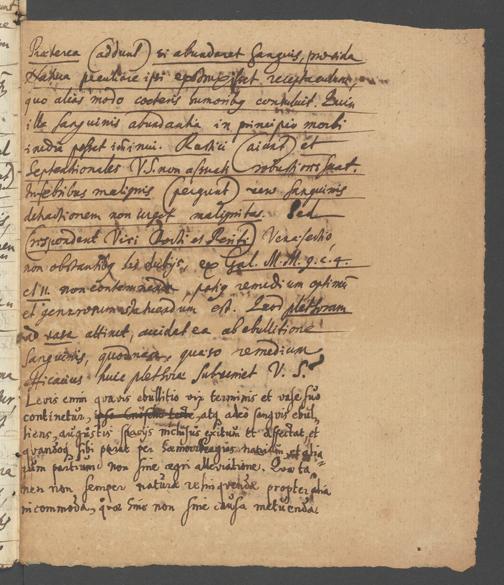 Præterea (addunt) si abundaret Sanguis, provida
Natura peculiare ipsi expromsisset receptaculum,
quo alias modo cœteris humoribq consuluit. Quin
illa sanguinis abundantia in principio morbi
inedia posset imminui. Rustici (aiunt) et
Septentrionales V.S. non assueti robustiores sunt.
In febribus malignis (pergunt) sanguinis
detractionem non urget malignitas. Sed
(respondent Viri Docti et Periti) Venæsectio
non obstantibq his dubijs, ex Gal. M. M. 9. c. 4.
et 11. non contemnend, potiq remedium optimu
et generosum statuendum est. Quod plethoram
ad vasa attinet, accidat ea ab ebullitione
Sanguinis, quodnam, quæso remedium
efficacius huic plethoræ subveniet V. S.?
Levis enim quavis ebullitio vix terminis et vase suo
continetur, atq adeo sanguis ebul-
liens, angustis spatijs inclusus exitum et affectat, et
quandoq sibi parat per hæmorrhagias narium, et alia-
rum partium: non sine ægri alleviatione. Quæ ta-
men non semper naturæ relinquenda propter alia
incommoda, quæ hinc non sine causa metuenda.